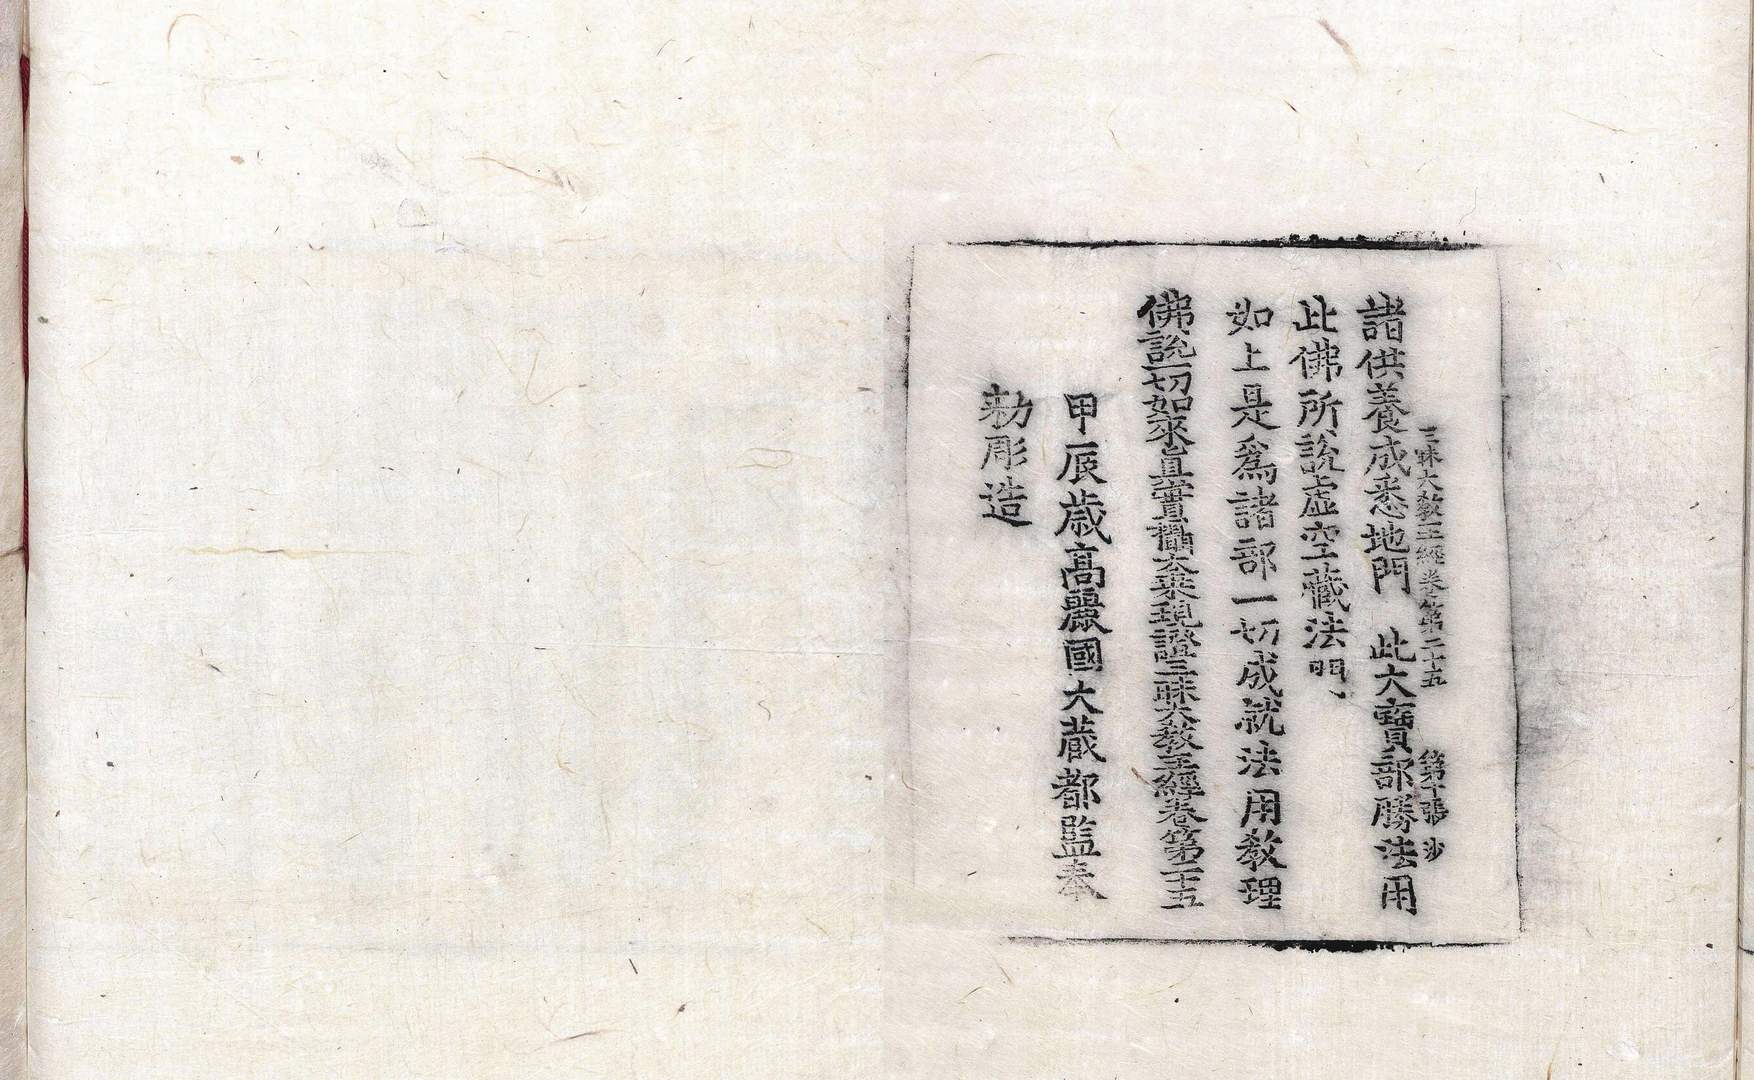 三昧大教王經卷第二十五 第十張 沙
諸供養成悉地門 此大寶部勝法用
此佛所說虛空藏法明
如上是爲諸部一切成就法用教理
佛說一切如來眞實攝大乘現證三昧大教王經卷第二十五
甲辰歲高麗國大藏都監奉
勅彫造